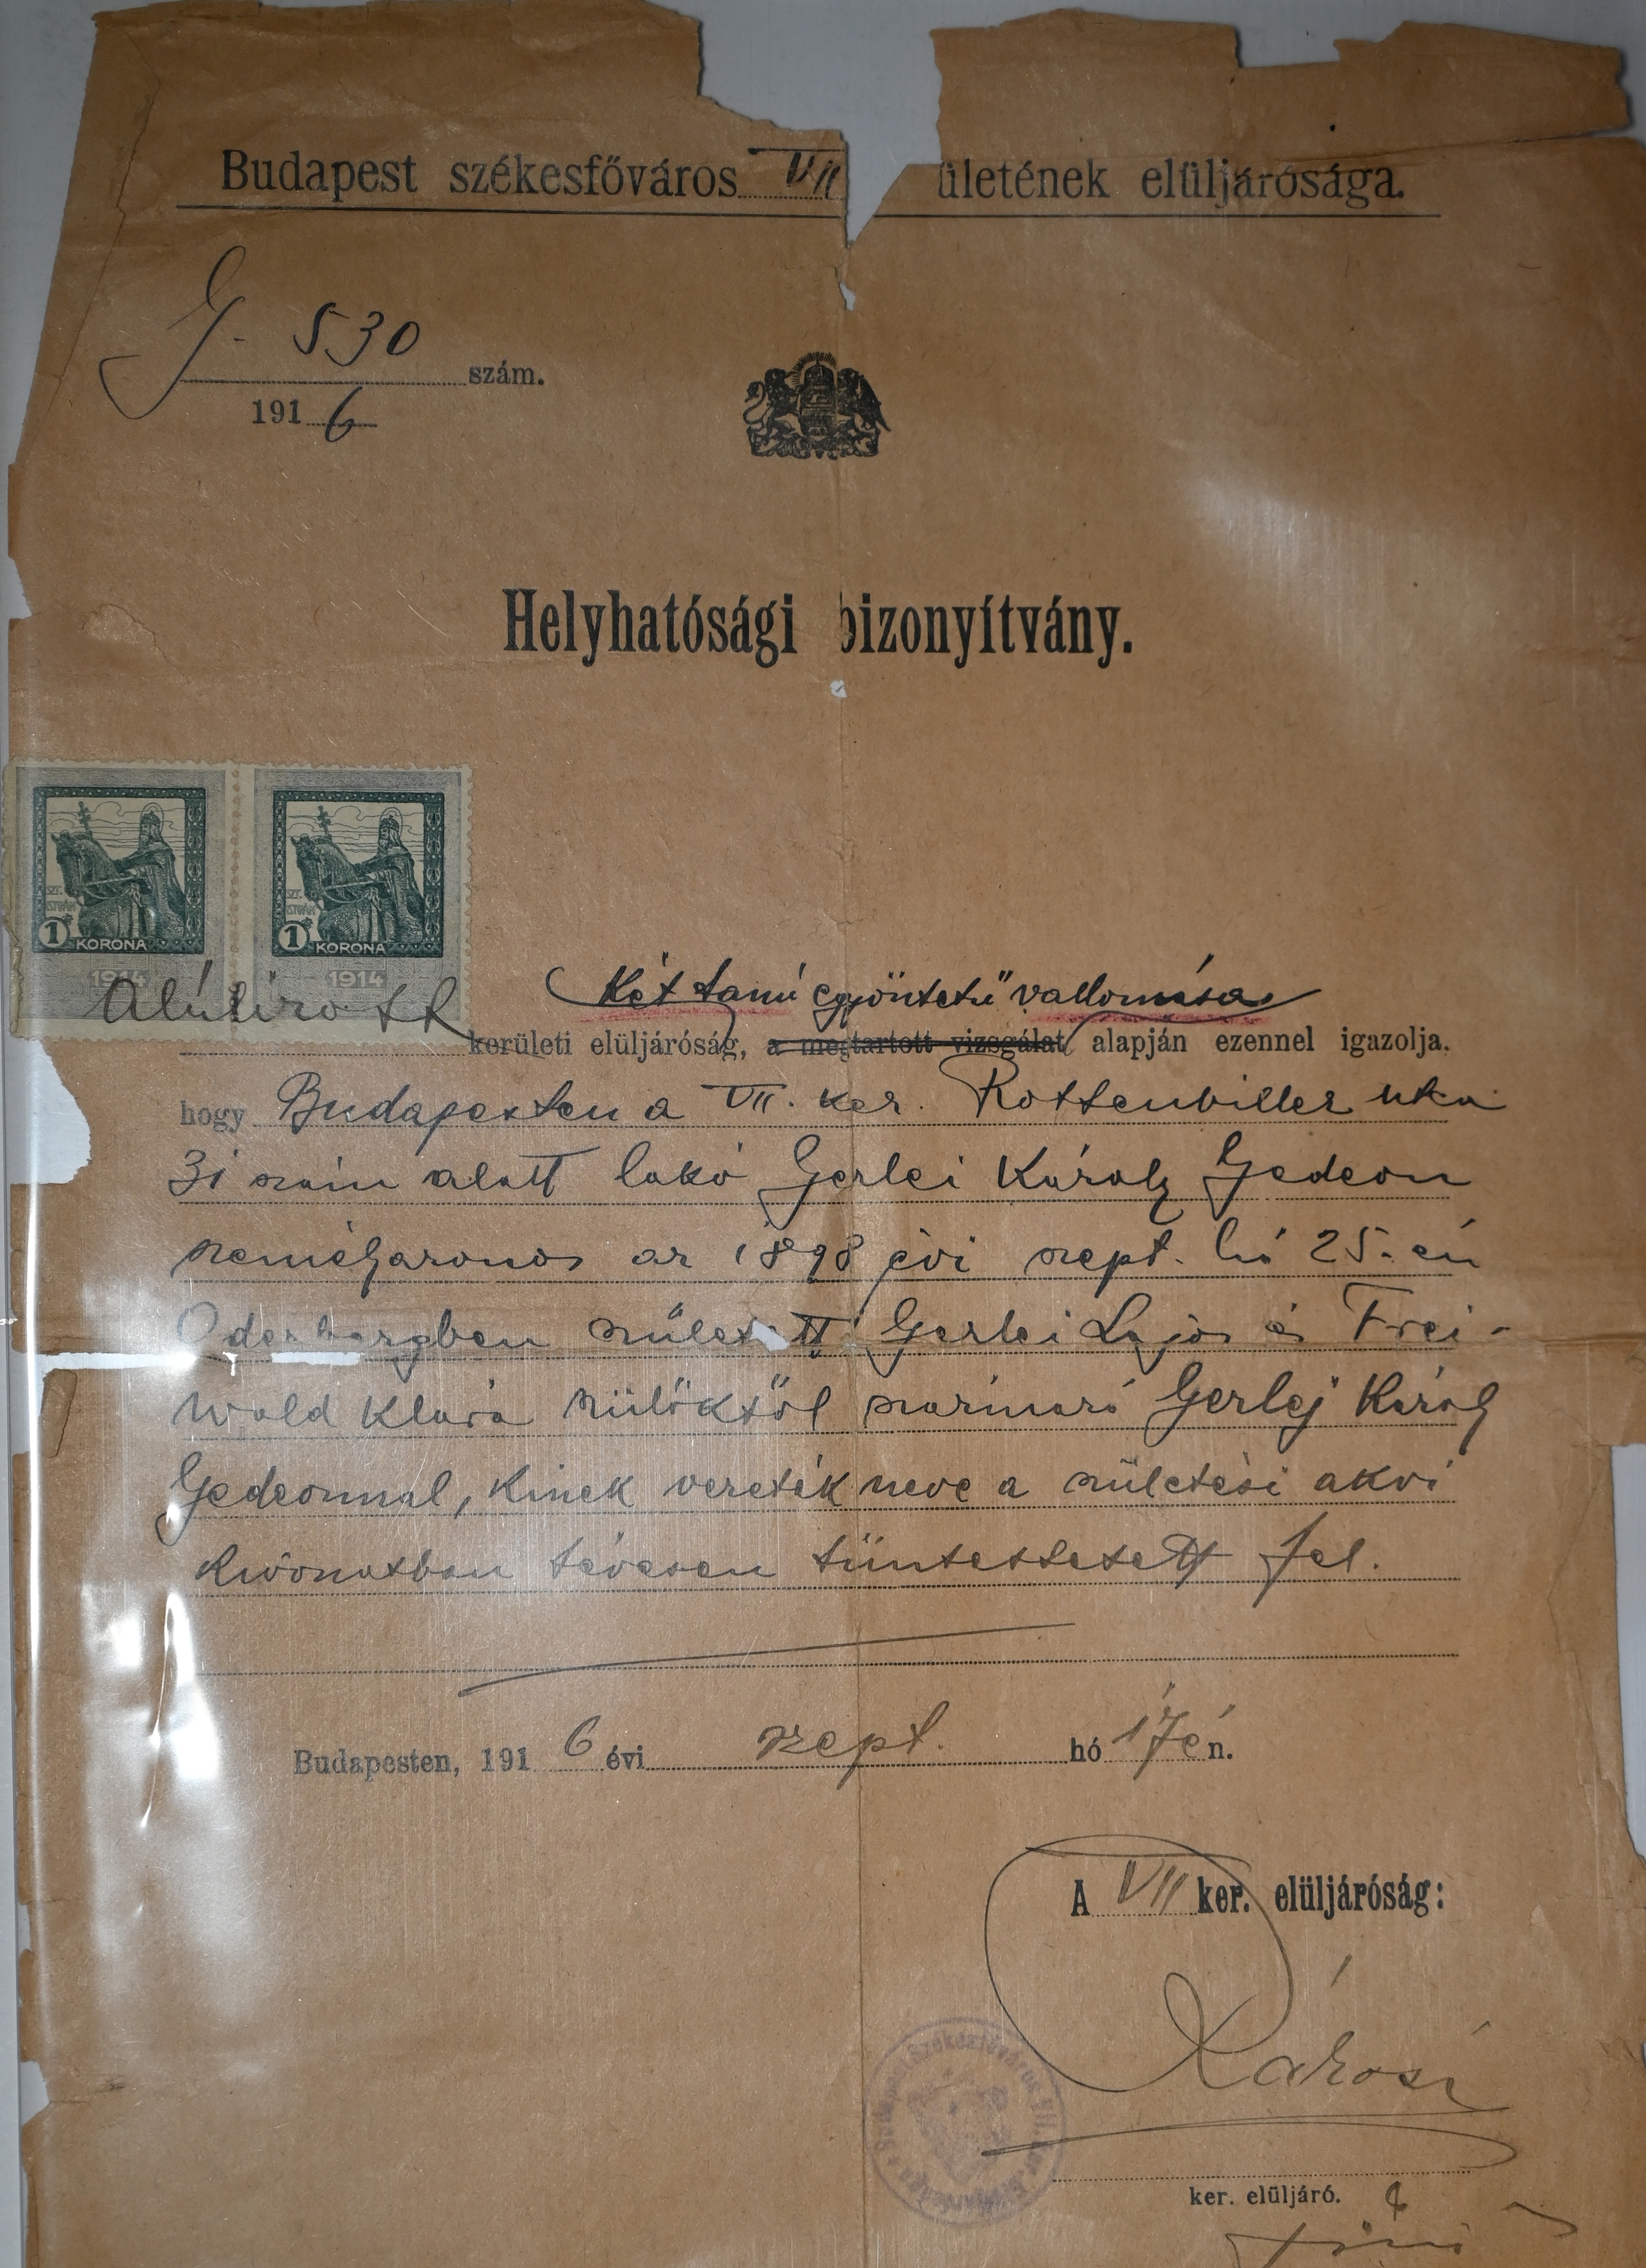 Budapest székesfőváros VII ületének elüljárósága.
G. 530 szám.
1916
Helyhatósági bizonyítvány.
SZT. ISTVÁN
1 KORONA
1914
SZT. ISTVÁN
1 KORONA
1914
Két tanú egyöntetű vallomása
Alúlíro
kerületi elüljáróság, a megtartott vizsgálat alapján ezennel igazolja.
hogy Budapesten a VII. ker. Rottenbiller utca
31 szám alatt lakó Gerlei Károly Gedeon
személyazonos az 1898 évi szept. hó 25.-én
Oderbergben született Gerlei Lajos és Frei-
wald Klára szülőktől származó Gerlej Károly
Gedeonnal, kinek vezeték neve a születési akvi
kivonatban tévesen tüntettetett fel.
Budapesten, 1916 évi szept. hó 17én.
A VII ker. elüljáróság:
Károsi
ker. elüljáró.